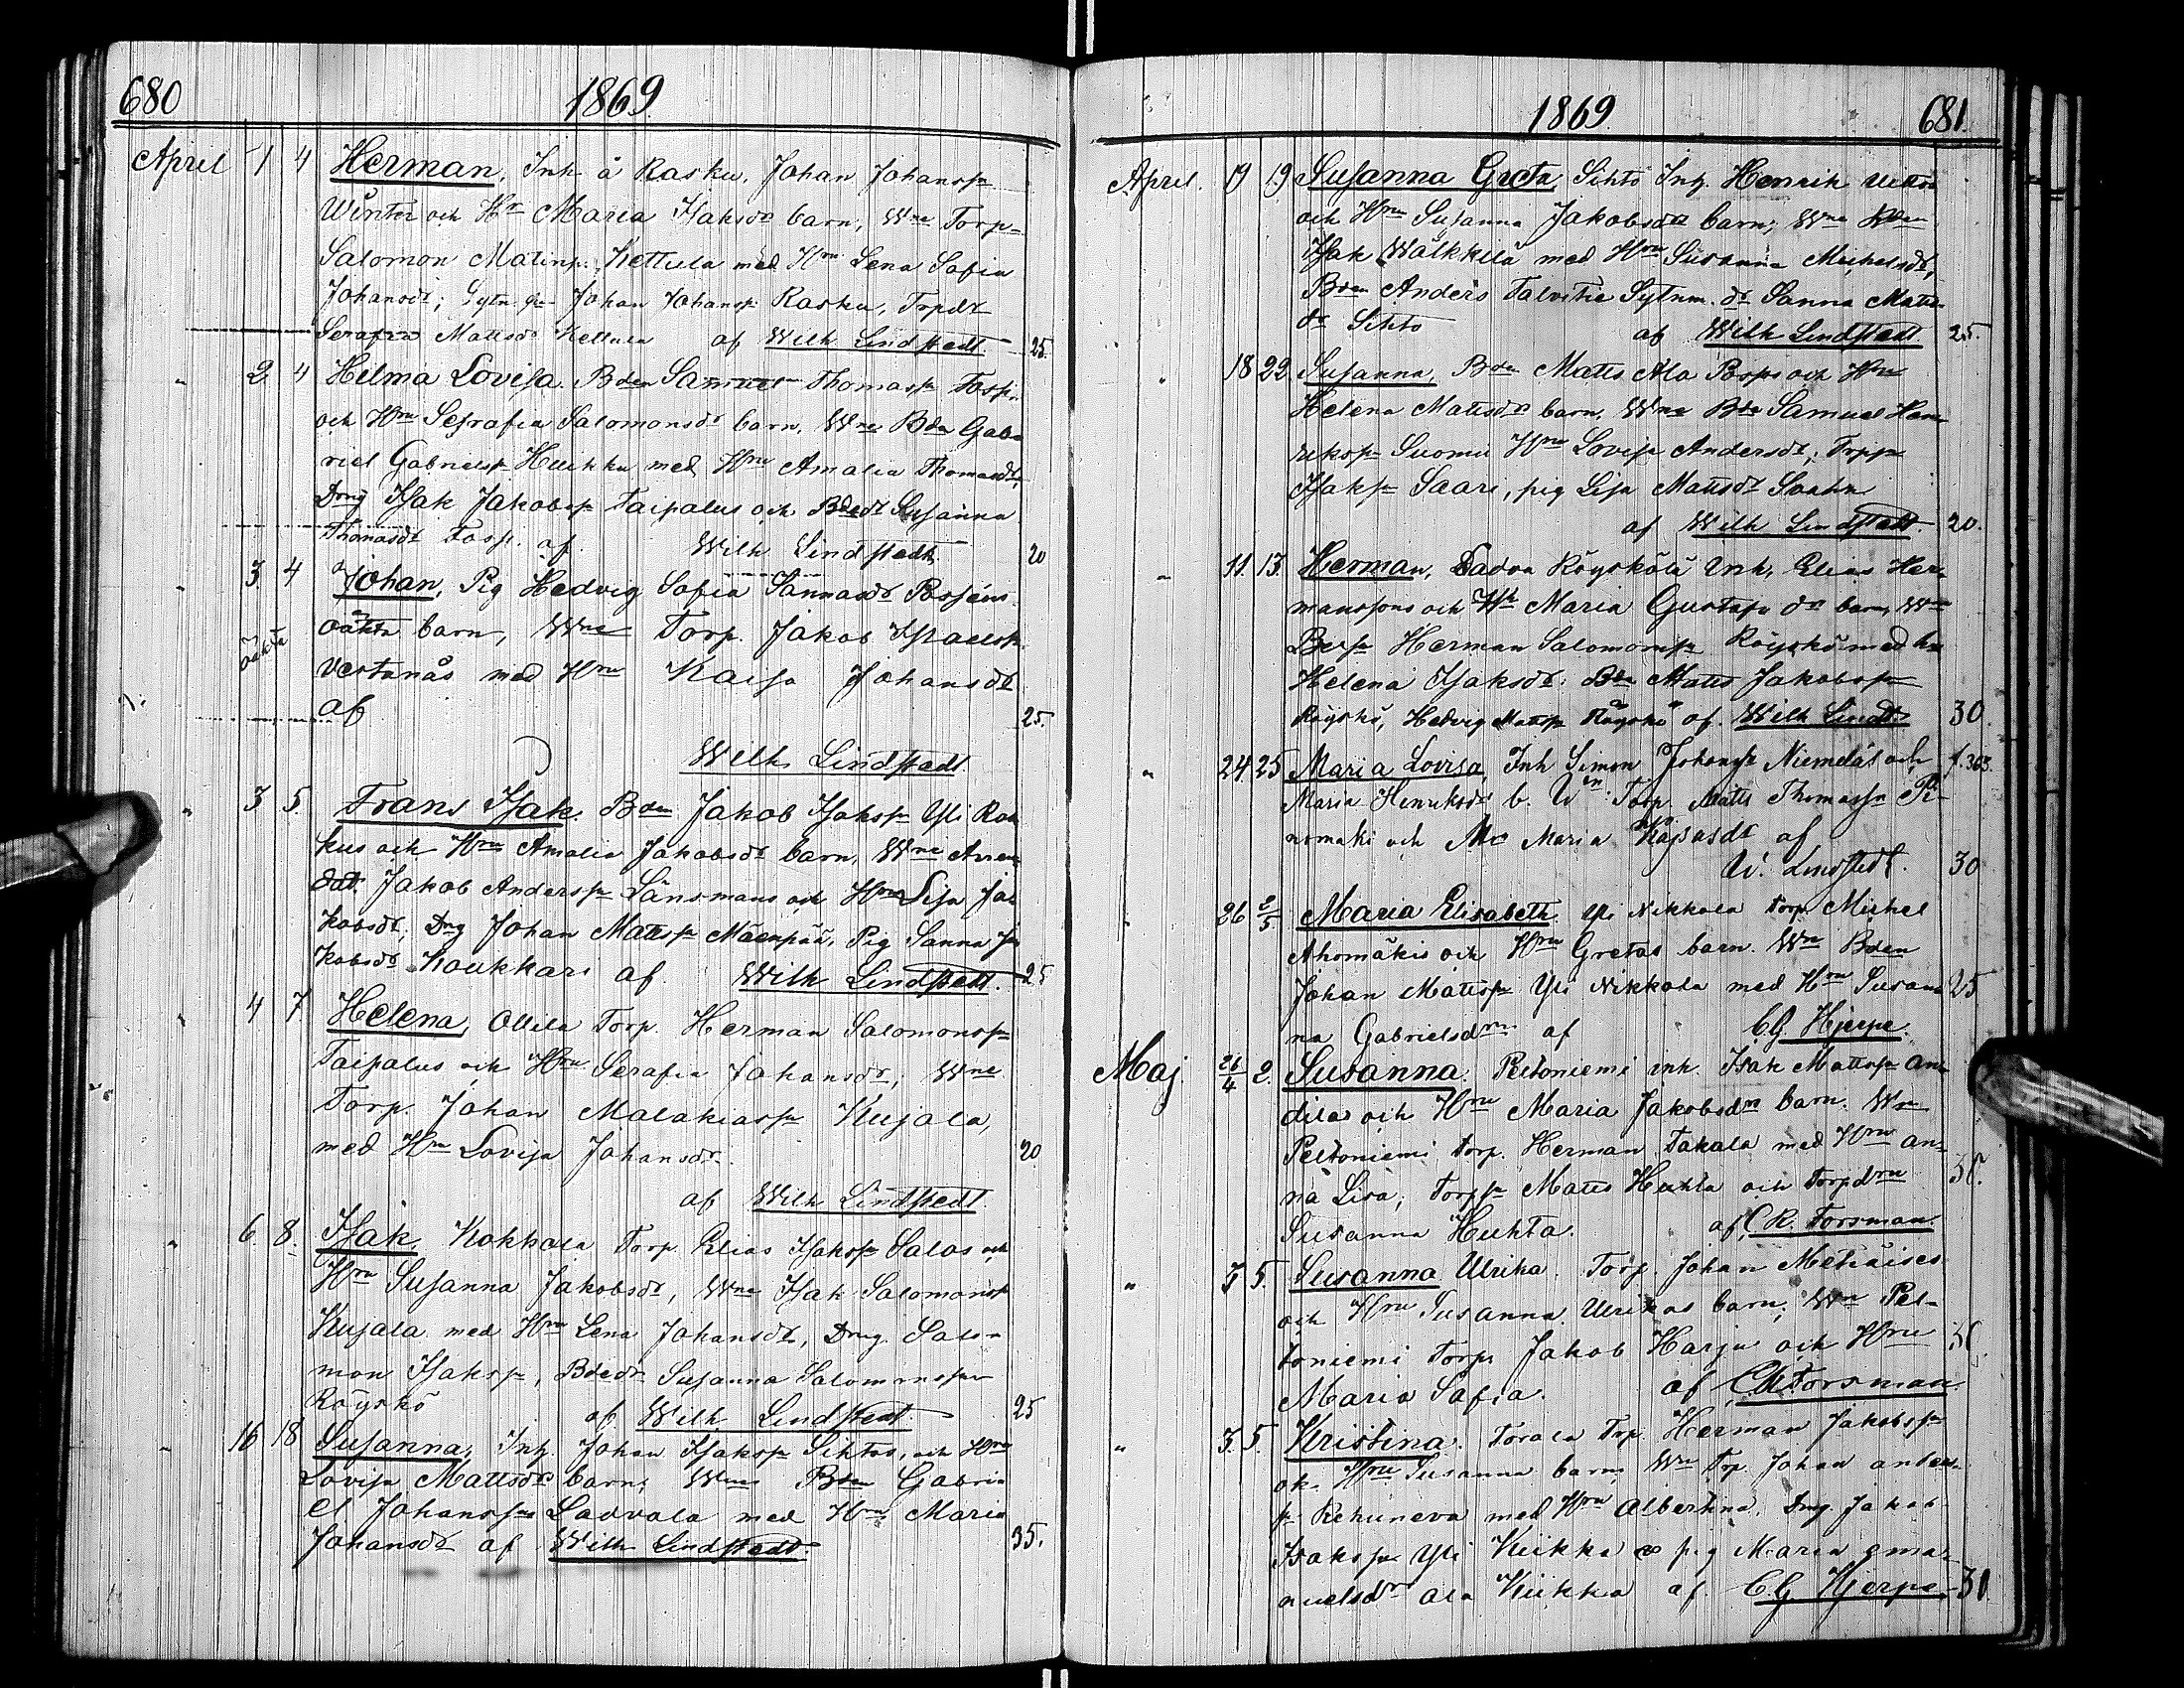 680 1869
April 1 4 Herman, Inh å Rasku, Johan Johanssn
Winter och Hr Maria Isaksdr barn, Wne Torp-
Salomon Matinp. Kettula med Hru Lena Sofia
Johansdr; Johan Johanss. Rasku, Trpdr
Serafia Mattsdr Kettula af Wilh Lindstedt. 25.
" 2 4 Helma Lovisa. Bden Samuel Thomassn
och Hru Serafia Salomonsdr barn, Wne Bden Gab-
riel Gabrielsn med Hru Amalia Thomasdr,
Dng Isak Jakobssn Taipalus och Bdedr Susanna
Thomasdr af. Wilh Lindstedt. 20
" 3. 4 Johan, Pig Hedvig Sofia
oäkta barn, Wne Torp. Jakob Israelsn
oäkta
Vestanås med Hru Kaisa Johansdr
af 25.
Wilh Lindstedt.
" 3 5. Frans Isak. Bden Jakob Isakssn Yli
kus och Hru Amalia Jakobsdr barn, Wne Aren-
dat. Jakob Anderssn Länsmans och Hru Lisa Ja-
kobsdr, Dng Johan Mattssn Mäenpää, Pig Sanna Ja
kobsdr Koukkari af Wilh Lindstedt. 25
" 4 7. Helena, Ollila Torp. Herman Salomonssn
Taipalus och Hru Serafia Johansdr; Wne
Torp. Johan Malakiassn Kujala,
med Hru Lovisa Johansdr. 20
af Wilh Lindstedt.
" 6. 8. Isak, Kokkola Torp Elias Isakssn Salos och
Hru Susanna Jakobsdr, Wne Isak Salomonss
Kujala med Hru Lena Johansdr, Dng. Salo-
mon Isakssn, Bdedr Susanna Salomonssn
Röyskö af Wilh Lindstedt. 25
" 16 18 Susanna, Inh. Johan Isakssn Sihtos, och Hru
Lovisa Mattsdr barn; Wne Bden Gabri
el Johanssn Ladvala med Hru Maria
Johansdr af Wilh Lindstedt. 35.
1869. 681.
April. 19 19 Susanna Greta Sihto Inh. Henrik
och Hru Susanna Jakobsdr barn; Wne Bden
Isak Wälkkilä med Hru Susanna Michelsdr,
Bden Anders Talvitie Sytnm. dr Sanna Matts
dr Sihto af Wilh Lindstedt. 25.
" 18 22. Susanna, Bden Matts Ala Porps och Hru
Helena Mattsdr barn. Wne Bde Samuel Hen
rikssn Suomii Hru Lovisa Andersdr; Trpp
Isakssn Saari, pig Lisa Mattsdr
af Wilh Lindstedt. 20.
" 11. 13. Herman, Röysköla Inh. Elias Her-
manssons och Maria Gustafs dr barn, Wne
Herman Salomonssn Röyskö med hu
Helena Isaksdr. Bde Matts Jakobssn
Röyskö, Hedvig Mattssn Röyskö af. Wilh Lindt. 30.
" 24 25 Maria Lovisa, Inh Simon Johanssn Niemeläs och f. 303.
Maria Henriksdr b. Wn: Torp. Matts Thomassn Pi-
nomäki och Maria af
W. Lindstedt. 30
" 26 2/5 Maria Elisabeth Yli Nikkola Torp. Michel
Ahomäkis och Hru Gretas barn. Wn Bden
Johan Mattssn Yli Nikkola med Hru Susan- 25
na Gabrielsdr af C.G. Hjerpe.
Maj. 26/4 2. Susanna. Peltoniemi inh. Isak Mattssn An-
dilas och Hru Maria Jakobsdr barn. Wn
Peltoniemi torp. Herman Takala med Hru An-
na Lisa; Torpssn Matts Huhta och Torpdrn
Susanna Huhta. af C R. Forsman.
" 3 5. Susanna Ulrika. Torp. Johan Metsäises
och Hru Susanna Ulrikas barn; Wn Pel-
toniemi Torp. Jakob Harju och Hru
Maria Sofia. af C R Forsman.
" 3. 5. Kristina. Torala Trp. Herman Jakobssn
ok. Hru Susanna barn Wn Trp. Johan Anders-
sn Rehuneva med Hru Albertina, Dng. Jakob
Isakssn Yli Kiikka pig Maria Ema-
nuelsdr Ala Kiikka af C.G. Hjerpe.